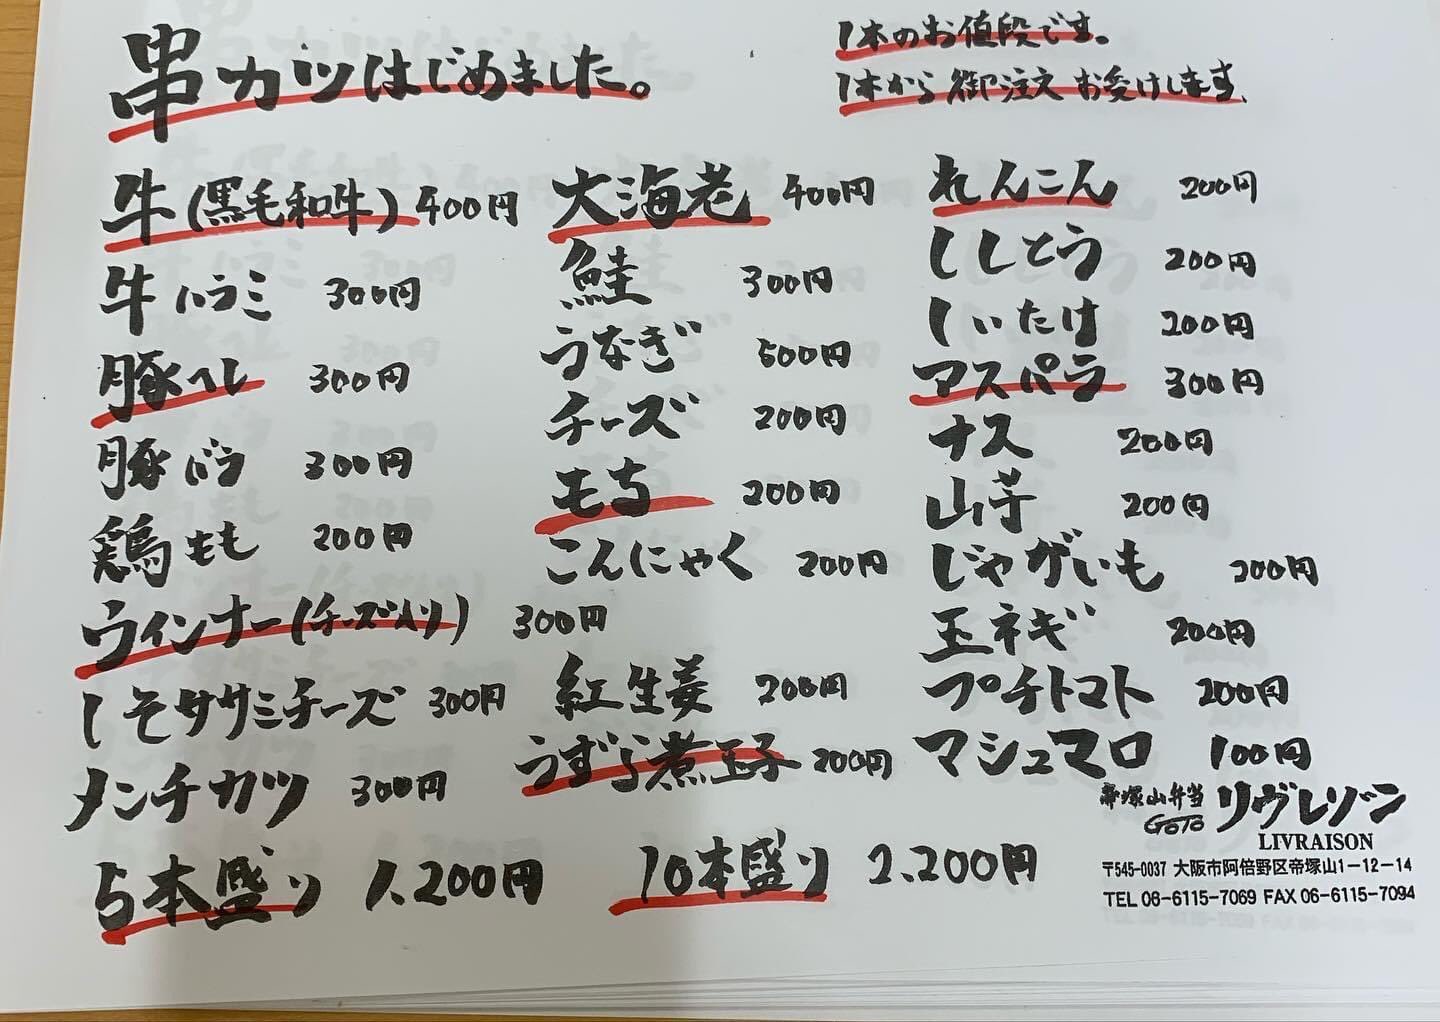 串カツはじめました。
1本のお値段です。
1本から御注文お受けします。
牛(黒毛和牛) 400円
牛ハラミ 300円
豚ヘレ 300円
豚バラ 300円
鶏もも 200円
ウインナー(チーズ入り) 300円
しそササミチーズ 300円
メンチカツ 300円
大海老 400円
鮭 300円
うなぎ 500円
チーズ 200円
もち 200円
こんにゃく 200円
紅生姜 200円
うずら煮玉子 200円
れんこん 200円
ししとう 200円
しいたけ 200円
アスパラ 300円
ナス 200円
山芋 200円
じゃがいも 200円
玉ネギ 200円
プチトマト 200円
マシュマロ 100円
5本盛り 1,200円
10本盛り 2,200円
帝塚山弁当
GOTO
リヴレゾン
LIVRAISON
〒545-0037 大阪市阿倍野区帝塚山1-12-14
TEL 06-6115-7069 FAX 06-6115-7094